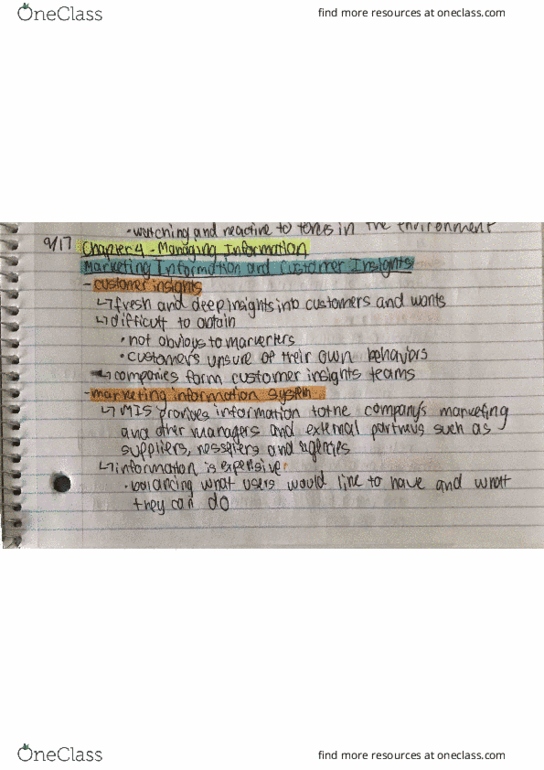 OneClass
find more resources at oneclass.com
• watching and reactive to forces in the environment
9/17 Chapter 4 - Managing Information
Marketing Information and Customer Insights
- customer insights
↳ fresh and deep insights into customers and wants
↳ difficult to obtain
• not obvious to marketers
• customers unsure of their own behaviors
↳ companies form customer insights teams
- marketing information system
↳ MIS provides information to the company's marketing
and other managers and external partners such as
suppliers, resellers and agencies
↳ information is expensive
• balancing what users would like to have and what
they can do
OneClass
find more resources at oneclass.com